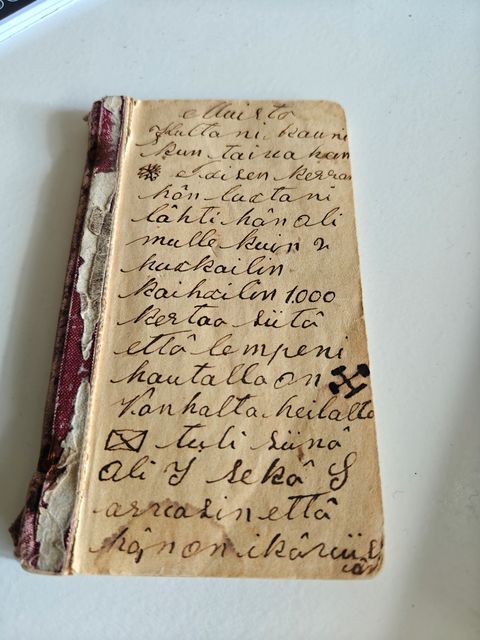 Muisto
Kultani kauni
kun taivahan
kerran
hän luotani
lähti hän oli
mulle kuin 2
huokailin
kaihoilin 1.000
kertaa siitä
että lempeni
hautalla on
Vanhalta heilalta
tuli siinä
oli J sekä S
arvasin että
hän on